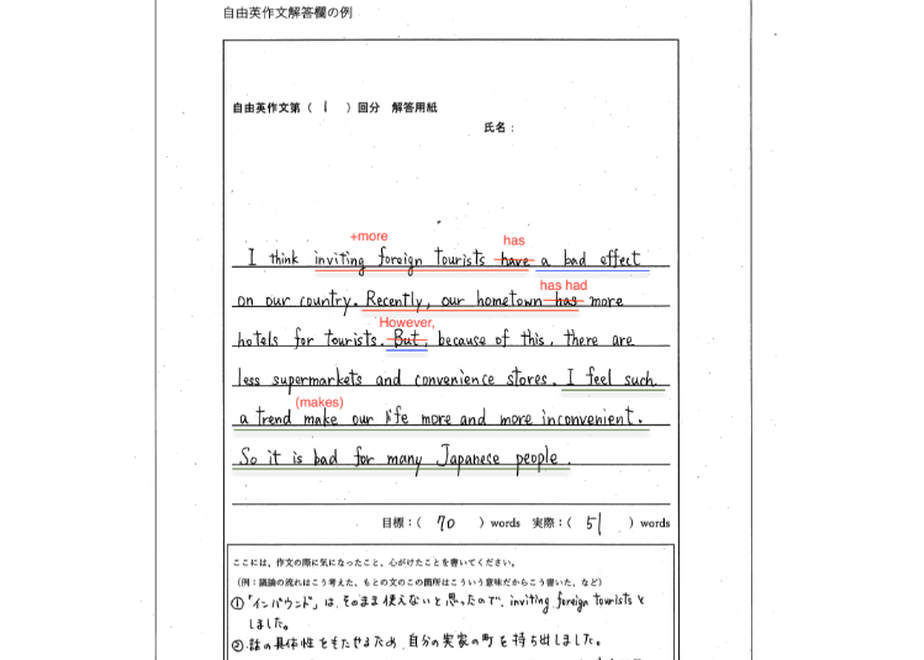 自由英作文解答欄の例
自由英作文第（ 1 ）回分 解答用紙
氏名：
+more has
I think inviting foreign tourists have a bad effect
has had
on our country. Recently, our hometown has more
However,
hotels for tourists. But, because of this, there are
less supermarkets and convenience stores. I feel such
(makes)
a trend make our life more and more inconvenient.
So it is bad for many Japanece people.
目標：（ 70 ）words 実際：（ 51 ）words
ここには、作文の際に気になったこと、心がけたことを書いてください。
（例：議論の流れはこう考えた、もとの文のこの箇所はこういう意味だからこう書いた、など）
①「インバウンド」は、そのまま使えないと思ったので、inviting foreign tourists と
しました。
②話の具体性をもたせるため、自分の実家の町を持ち出しました。